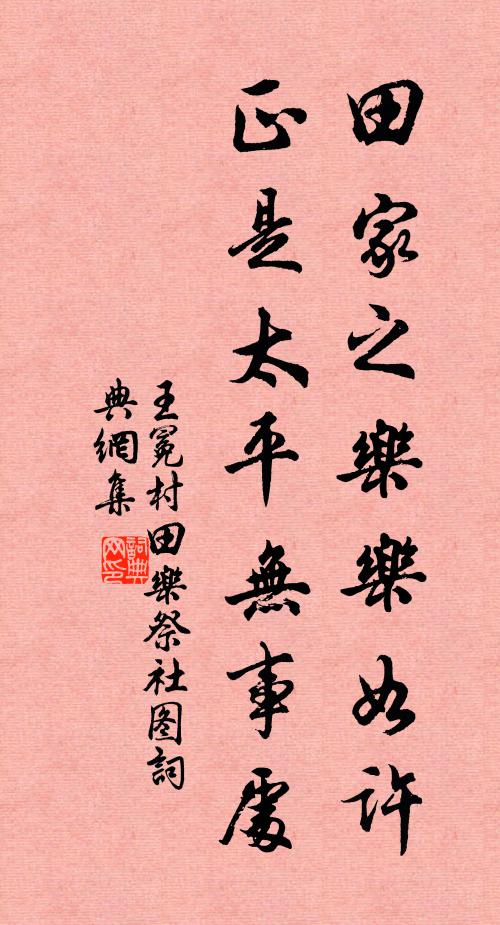 田家之樂樂如許
正是太平無事處
王冕村田樂祭社图詞
典網集
詞典網印